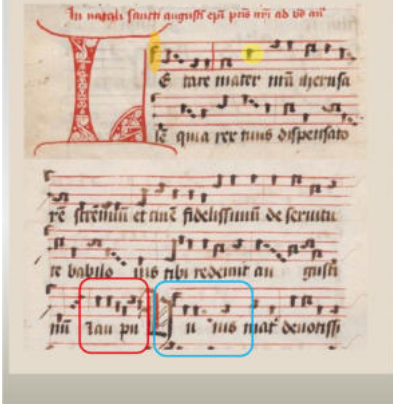 In natali sancti augusti epi pris nri ad ve an
L E tare mater nra iherusa
lē quia rex tuus dispensato
rē strēnuū et ciuē fidelissimū de seruitu
te babilo nis tibi redemit au gusti
nū C u ius mat deuotissi